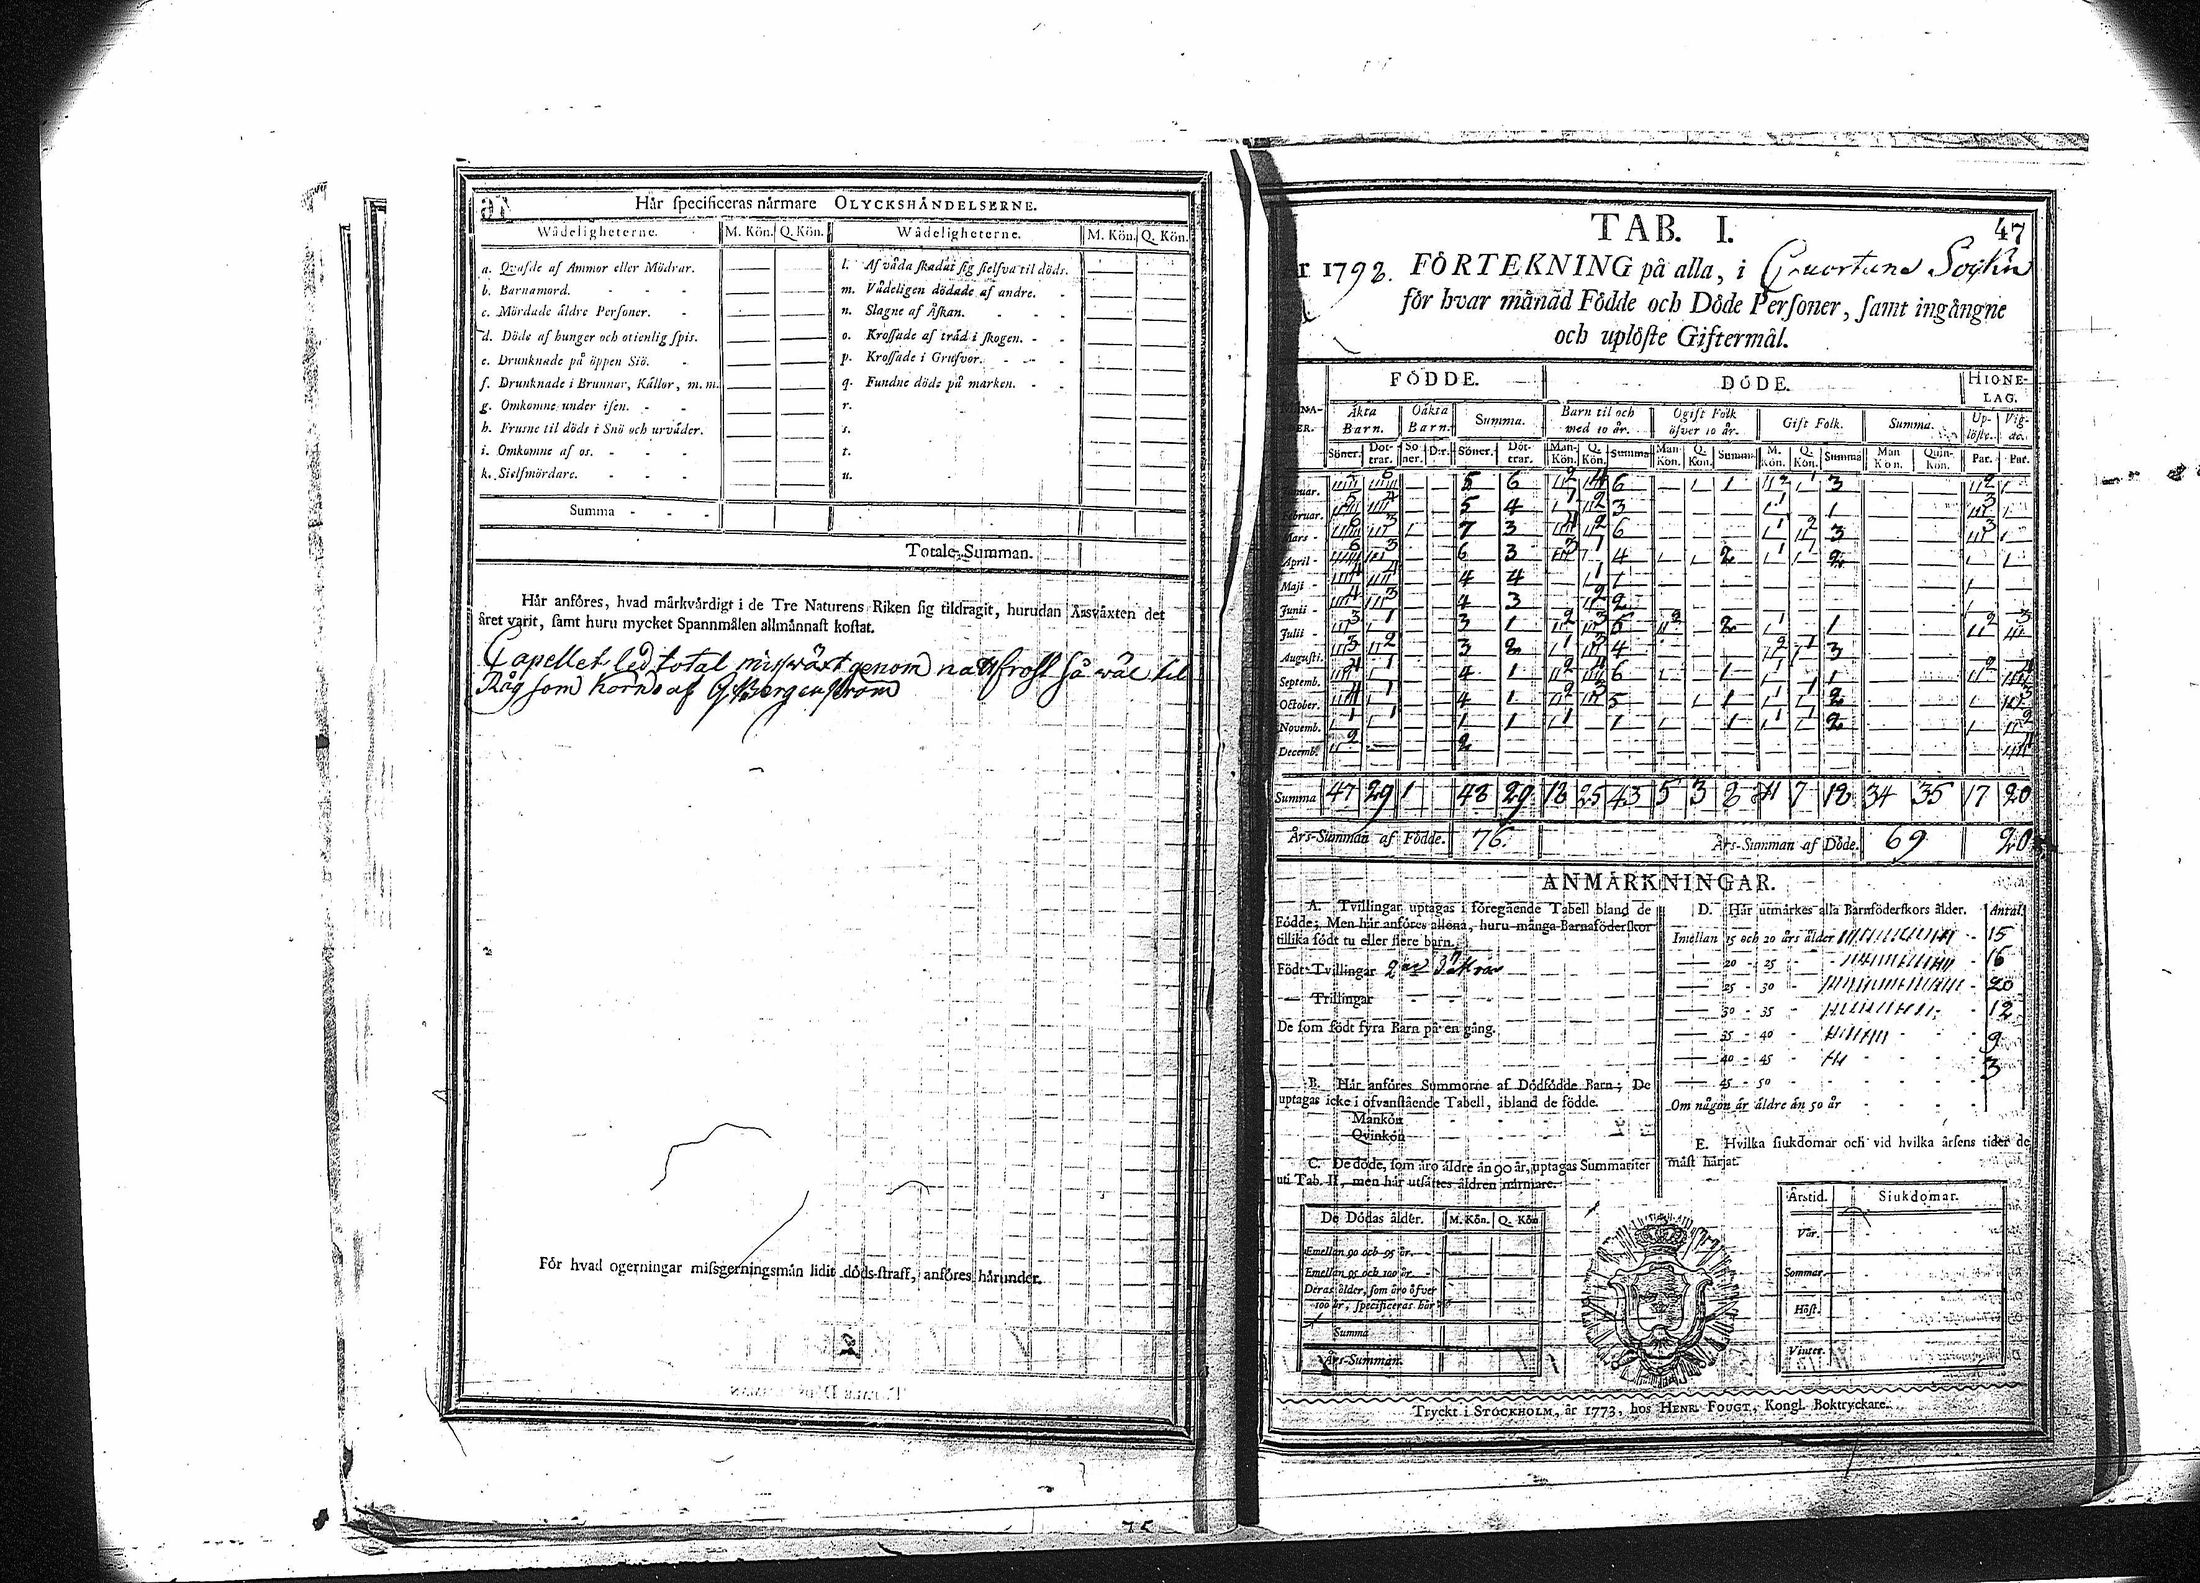 Hår specificeras nårmare OLYCKSHÅNDELSERNE.
Wådeligheterne. M. Kön. Q. Kön. Wådeligheterne. M. Kön. Q. Kön.
a. Qvafde af Ammor eller Mödrar. l. Af våda skadat sig sielfva til döds.
b. Barnamord. - - - m. Vådeligen dödade af andre. -
c. Mördade åldre Personer. - n. Slagne af Åskan. - - -
d. Döde af hunger och otienlig spis. o. Krossade af tråd i skogen. - -
e. Drunknade på öppen Siö. - p. Krossade i Grufvor. - - -
f. Drunknade i Brunnar, Kållor, m. m. q. Fundne döde på marken. - -
g. Omkomne under isen. - - r.
h. Frusne til döds i Snö och urvåder. s.
i. Omkomne af os. - - - t.
k. Sielfmördare. - - - u.
Summa - - -
Totale-Summan.
Hår anföres, hvad mårkvårdigt i de Tre Naturens Riken sig tildragit, hurudan Årsvåxten det
året varit, samt huru mycket Spannmålen allmånnast kostat.
Capellet led total misswäxt genom nattfrost så wäl til
Råg som Korn af
För hvad ogerningar missgerningsmån lidit döds-straff, anföres hårunder.
47
TAB. I.
År 1792. FÖRTEKNING på alla, i Sokn
för hvar månad Födde och Döde Personer, samt ingångne
och uplöste Giftermål.
FÖDDE. DÖDE. HIONE-LAG.
MÅNA-DER. Åkta Barn. Oåkta Barn. Summa. Barn til och med 10 år. Ogift Folk öfver 10 år. Gift Folk. Summa. Up-löste. Vig-de.
Söner. Döt-trar. Sö ner. D:r. Söner. Döt-trar. Man-Kön. Q. Kön. Summa Man Kön. Q. Kön. Summa M. Kön. Q. Kön. Summa Man Kön. Quin-Kön. Par. Par.
Januar. 5 6 5 6 2 4 6 1 1 2 1 3 2 1
Februar. 5 4 5 4 1 2 3 1 1 3 1
Mars - 6 3 1 7 3 4 2 6 1 2 3 3 1
April - 6 3 6 3 3 1 4 1 1 2 1 1 2 1 1
Maji - 4 4 4 4 1 1 1
Junii - 4 3 4 3 2 2 1
Julii - 3 1 3 1 2 3 5 2 2 1 1 2 3
Augusti. 3 2 3 2 1 3 4 2 1 3
Septemb. 4 1 4 1 2 4 6 1 1 1 1 2 4
October. 4 1 4 1 2 3 5 1 1 1 1 2 1 3
Novemb. 1 1 1 1 1 1 1 1 1 1 2 1 2
Decemb. 2 2 4
Summa 47 29 1 48 29 18 25 43 5 3 8 11 7 18 34 35 17 20
Års-Summan af Födde. 76. Års-Summan af Döde. 69 20
ANMÅRKNINGAR.
A. Tvillingar uptagas i föregående Tabell bland de
Födde; Men hår anföres allena, huru många Barnaföderskor
tillika födt tu eller flere barn.
Födt Tvillingar 2
— Trillingar
De som födt fyra Barn på en gång.
B. Hår anföres Summorne af Dödfödde Barn; De
uptagas icke i ofvanstående Tabell, ibland de födde.
Mankön
Qvinkön
C. De döde, som åro åldre ån 90 år, uptagas Summariter
uti Tab. II, men hår utsåttes åldren nårmare.
De Dödas ålder. M. Kön. Q. Kön
Emellan 90 och 95 år.
Emellan 95 och 100 år
Deras ålder, som åro öfver
100 år, specificeras hår
Summa
Års-Summan.
D. Hår utmårkes alla Barnföderskors ålder. Antal.
Imellan 15 och 20 års ålder 15
— 20 - 25 - 16
— 25 - 30 - 20
— 30 - 35 - 12
— 35 - 40 - 9
— 40 - 45 - 3
— 45 - 50 -
Om någon år åldre ån 50 år
E. Hvilka siukdomar och vid hvilka årsens tider de
måst hårjat.
Årstid. Siukdomar.
Vår.
Sommar.
Höst.
Vinter.
Tryckt i STOCKHOLM, år 1773, hos HENR. FOUGT, Kongl. Boktryckare.